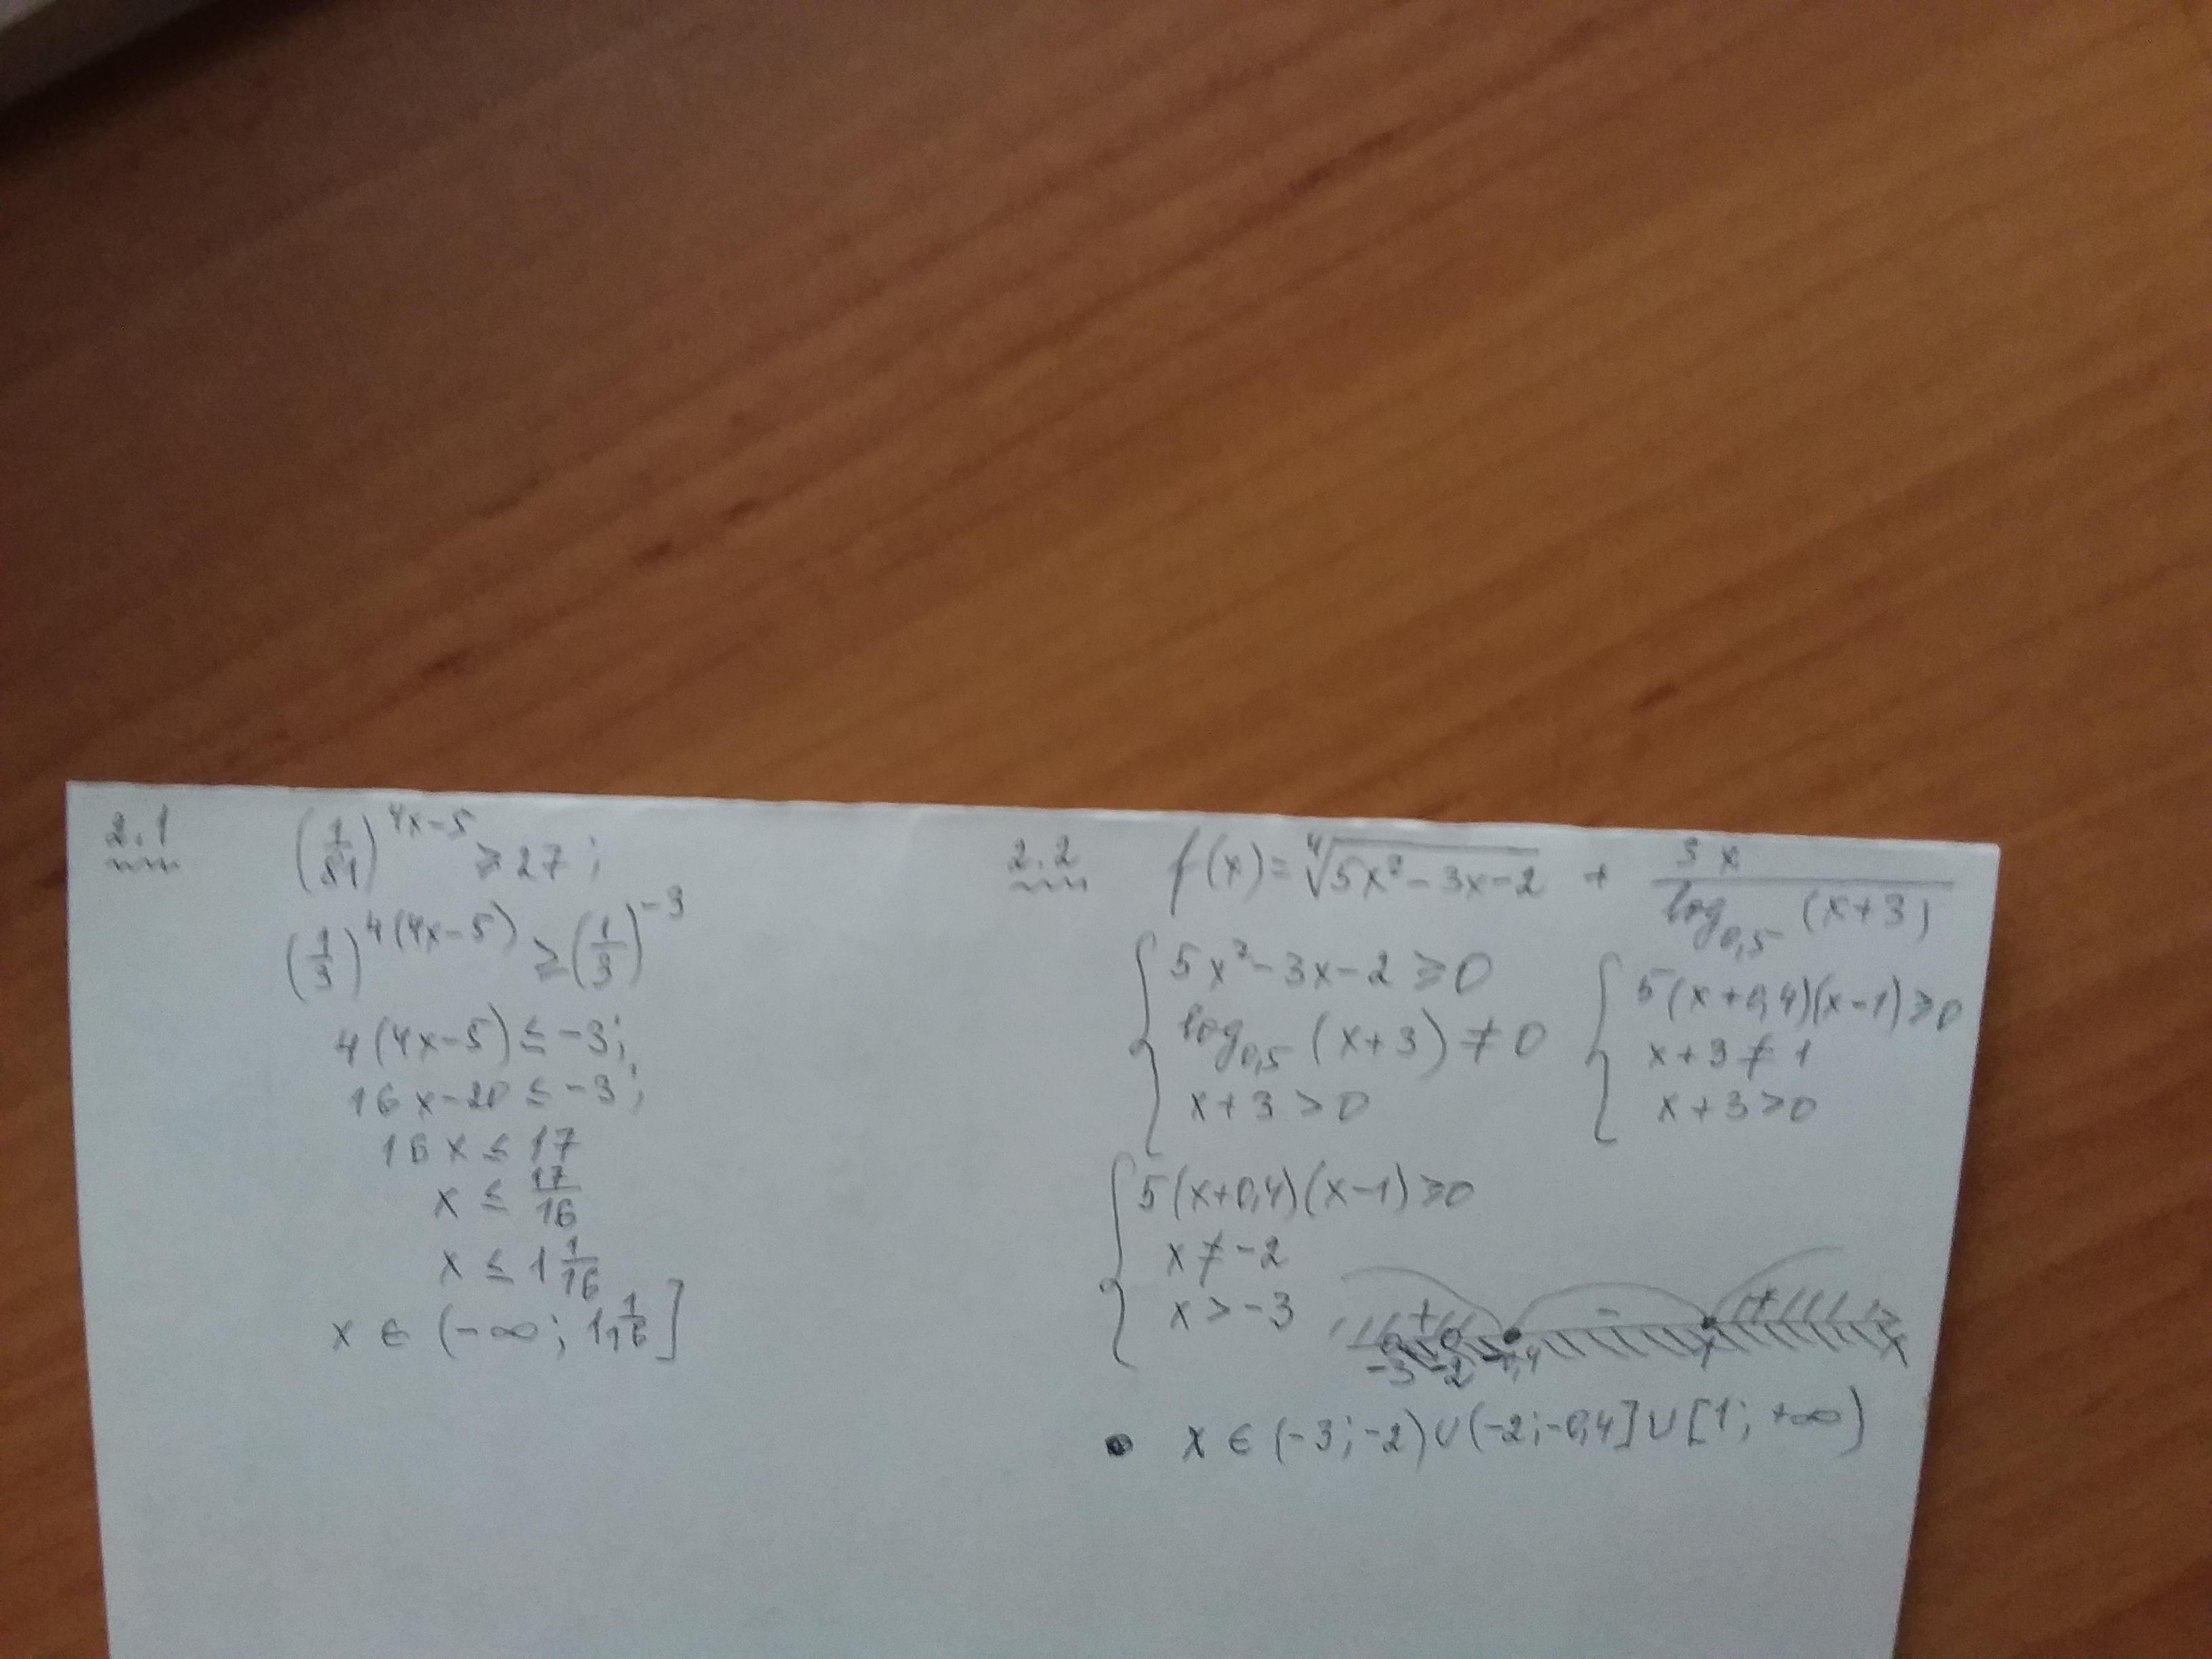 2.1
(1/81)^(4x-5) ≥ 27;
(1/3)^(4(4x-5)) ≥ (1/3)^(-3)
4(4x-5) ≤ -3;
16x-20 ≤ -3;
16x ≤ 17
x ≤ 17/16
x ≤ 1 1/16
x ∈ (-∞; 1 1/16]
2.2
f(x) = ∜(5x²-3x-2) + 3x/log_0,5 (x+3)
{ 5x²-3x-2 ≥ 0
log_0,5 (x+3) ≠ 0
x+3 > 0
{ 5(x+0,4)(x-1) ≥ 0
x+3 ≠ 1
x+3 > 0
{ 5(x+0,4)(x-1) ≥ 0
x ≠ -2
x > -3
+ - +
-3 -2 -0,4 1 x
x ∈ (-3;-2)∪(-2;-0,4]∪[1; +∞)